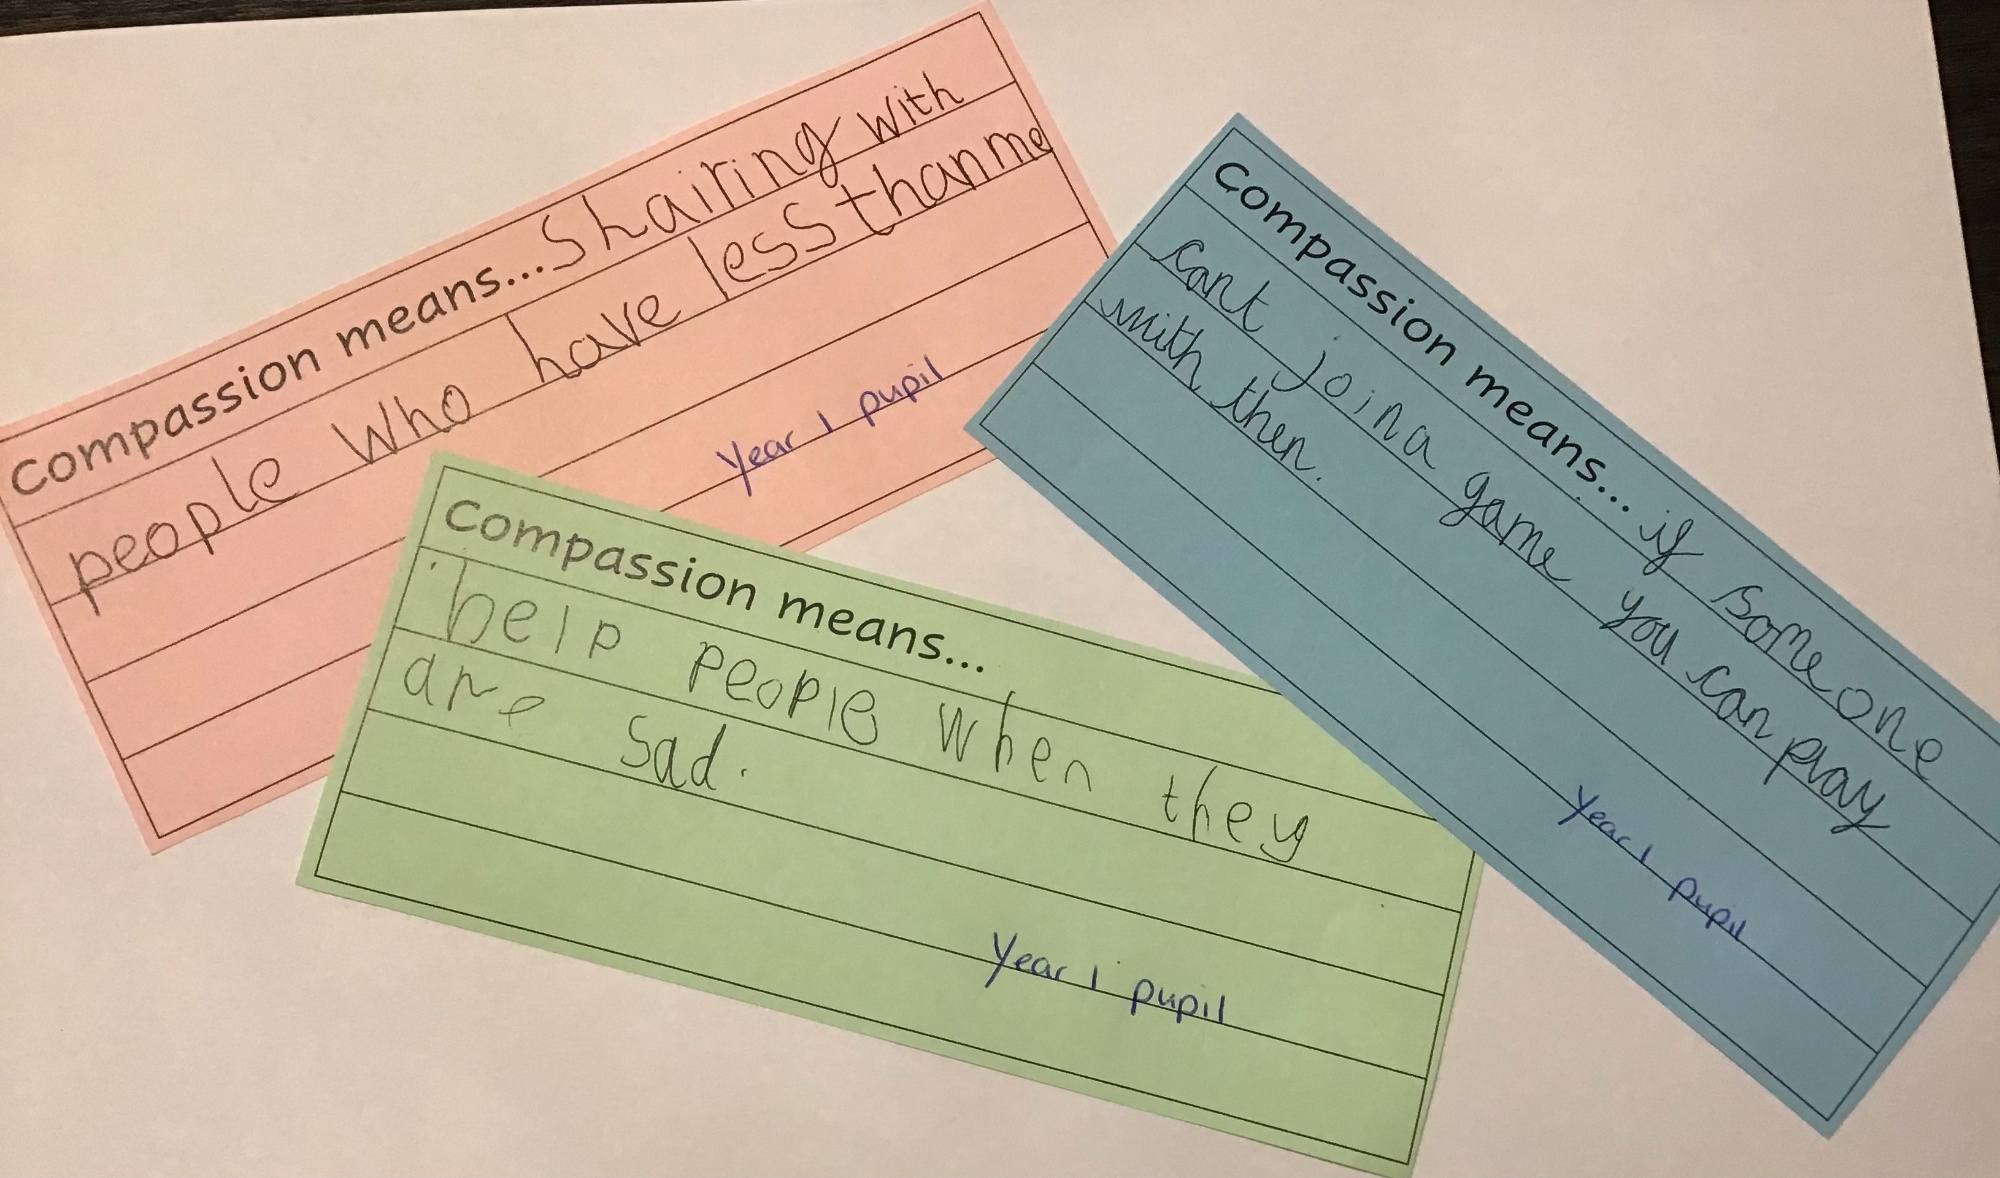 Compassion means... Shairing with
people who have less than me
Year 1 pupil
Compassion means...
help people when they
are sad.
Year 1 pupil
Compassion means... if someone
cant join a game you can play
with then.
Year 1 pupil